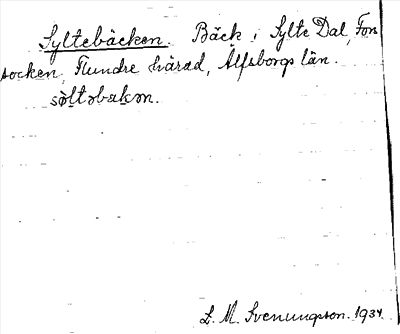 Syltebäcken. Bäck i Sylte Dal, Fors
socken, Flundre härad, Älfsborgs län.
sỳltəbækən.
L. M. Svenungsson. 1934.